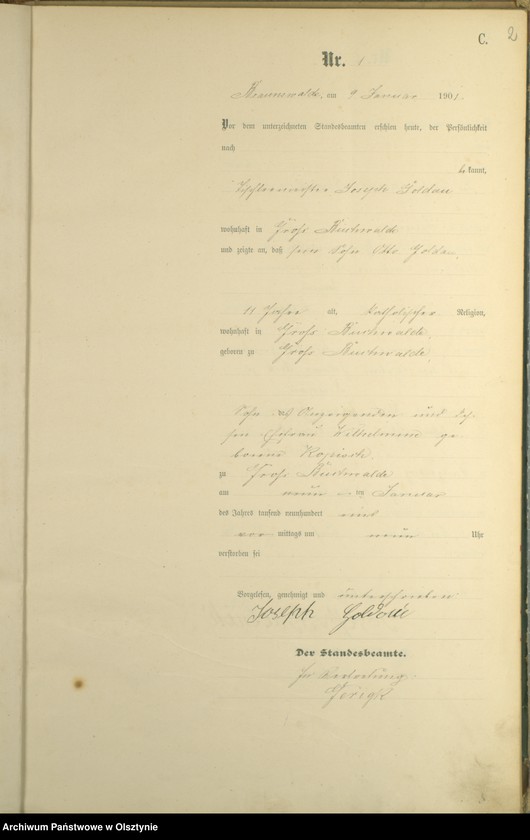 C. 2
Nr. 1
Braunswalde, am 9 Januar 1901.
Vor dem unterzeichneten Standesbeamten erschien heute, der Persönlichkeit
nach
bekannt,
Tischlermeister Joseph Goldau
wohnhaft in Groß Buchwalde
und zeigte an, daß sein Sohn Otto Goldau,
11 Jahre alt, katholischer Religion,
wohnhaft in Groß Buchwalde,
geboren zu Groß Buchwalde,
Sohn des Anzeigenden und des-
sen Ehefrau Wilhelmine ge-
borene
zu Groß Buchwalde
am neun ten Januar
des Jahres tausend neunhundert eins
vor mittags um neun Uhr
verstorben sei
Vorgelesen, genehmigt und unterschrieben
Joseph Goldau
Der Standesbeamte.
In Vertretung
Archiwum Państwowe w Olsztynie